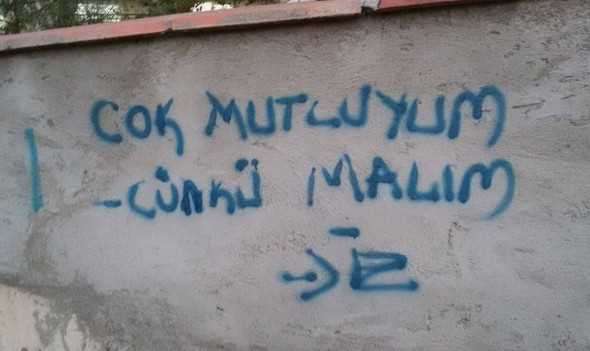 ÇOK MUTLUYUM
-ÇÜNKÜ MALIM